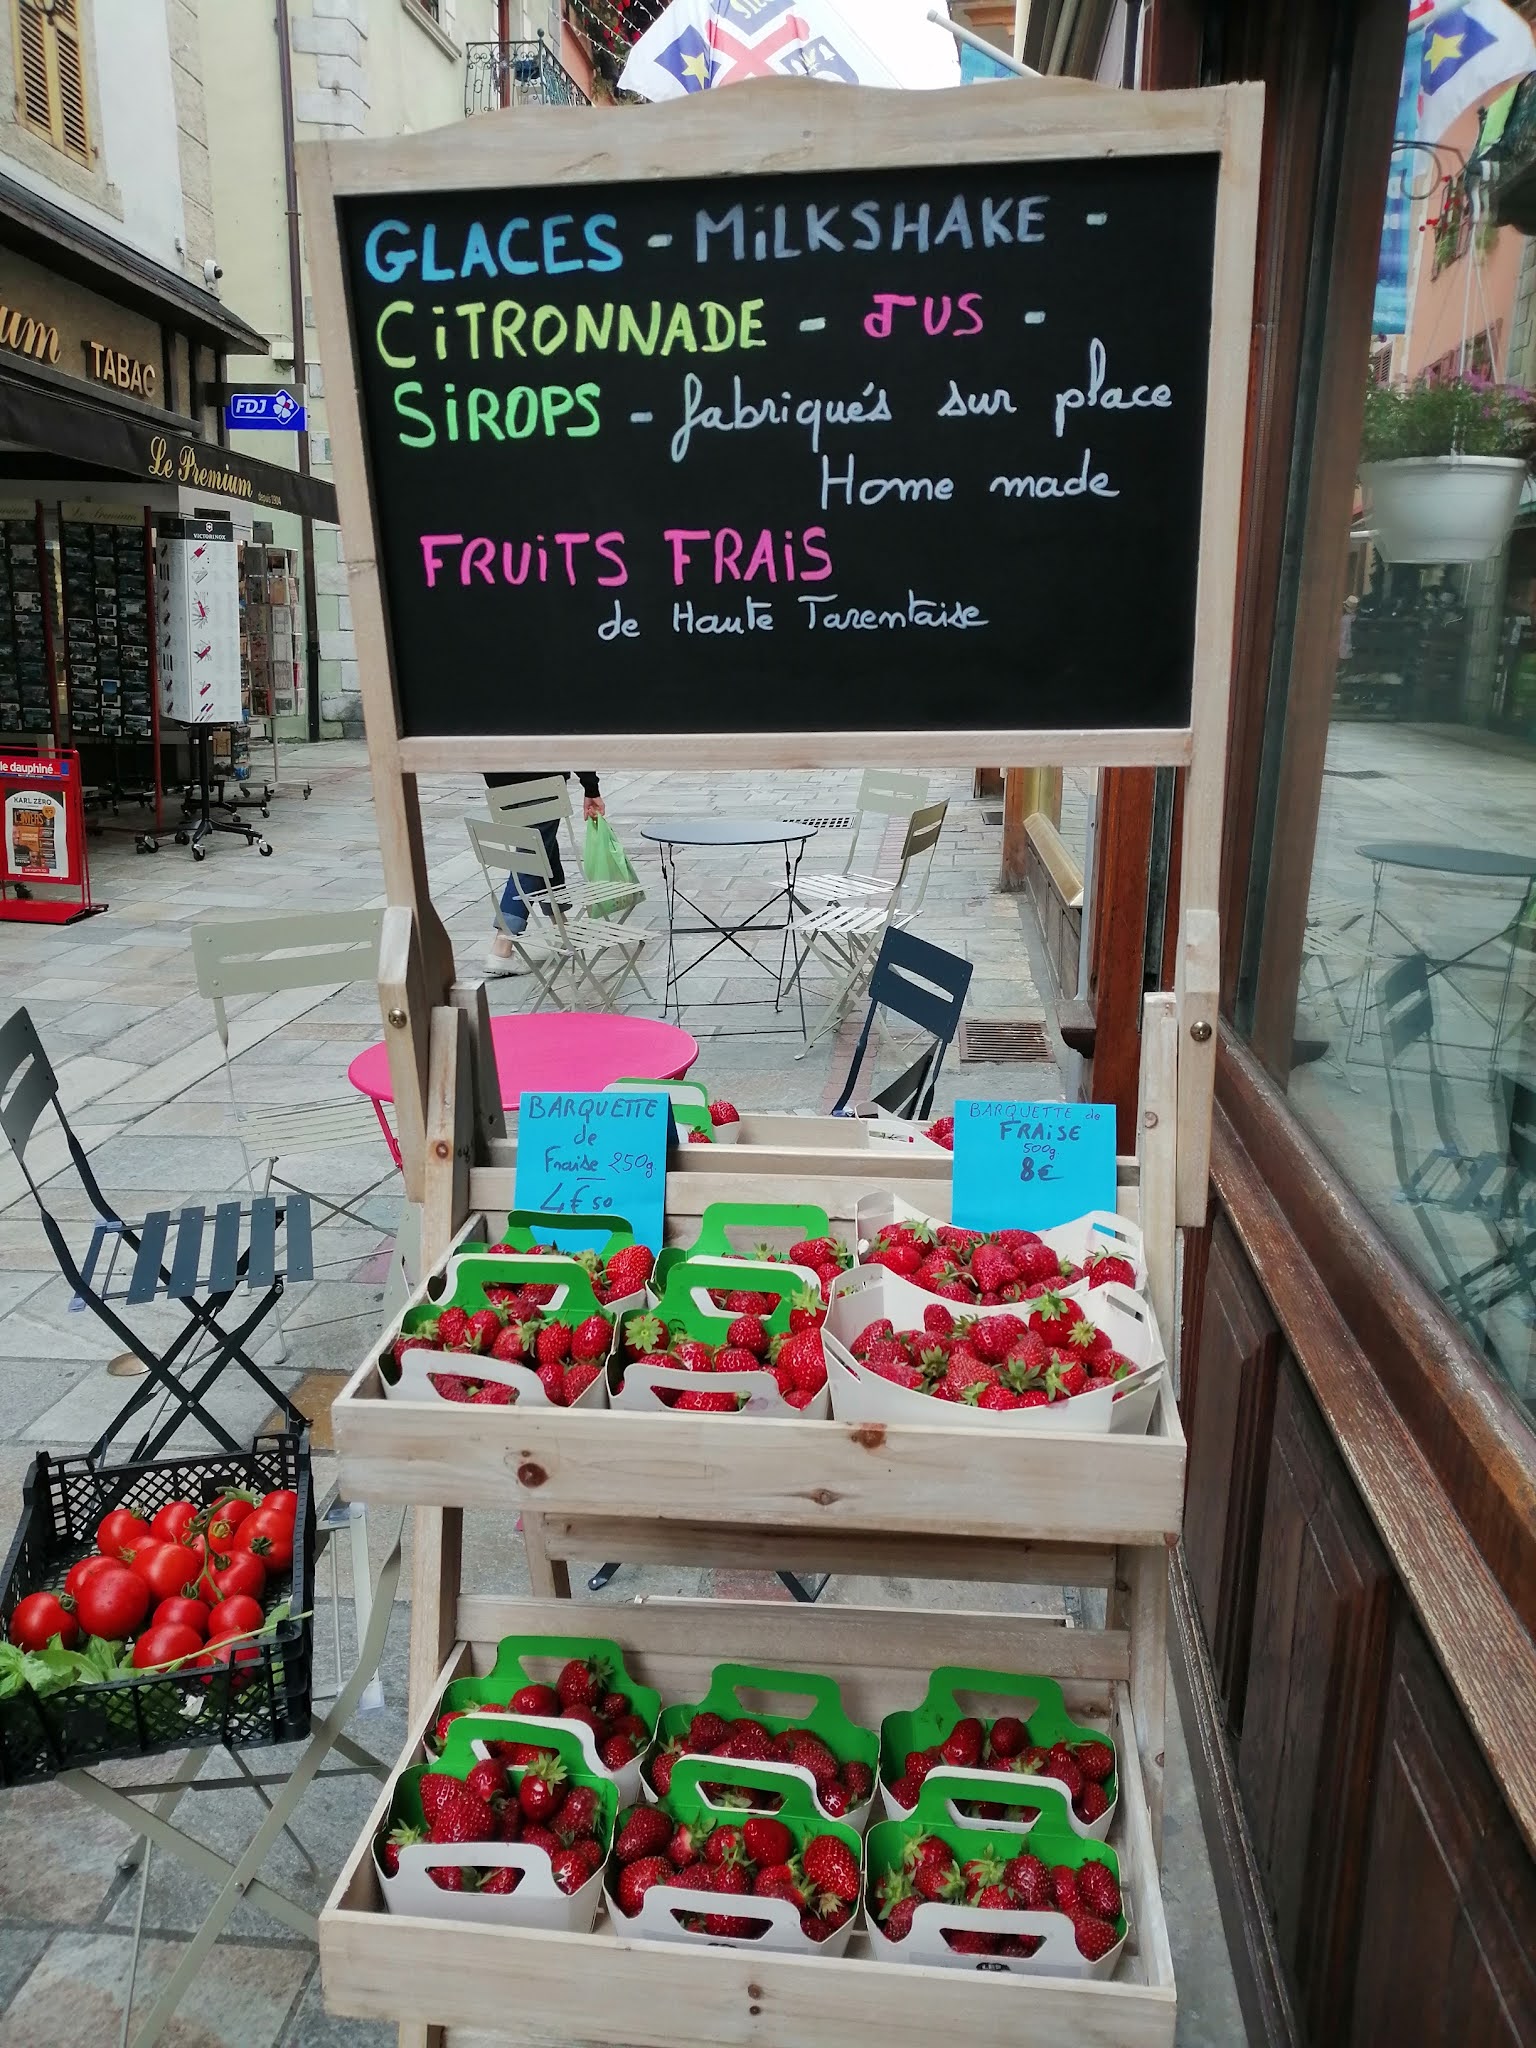 GLACES - MiLKSHAKE -
CiTRONNADE - JUS -
SiROPS - fabriqués sur place
Home made
FRUiTS FRAiS
de Haute Tarentaise
BARQUETTE
de
Fraise 250g
4€50
BARQUETTE de
FRAiSE
500g
8€
um TABAC
FDJ
Le Premium
depuis 1904
VICTORINOX
le dauphiné
KARL ZERO